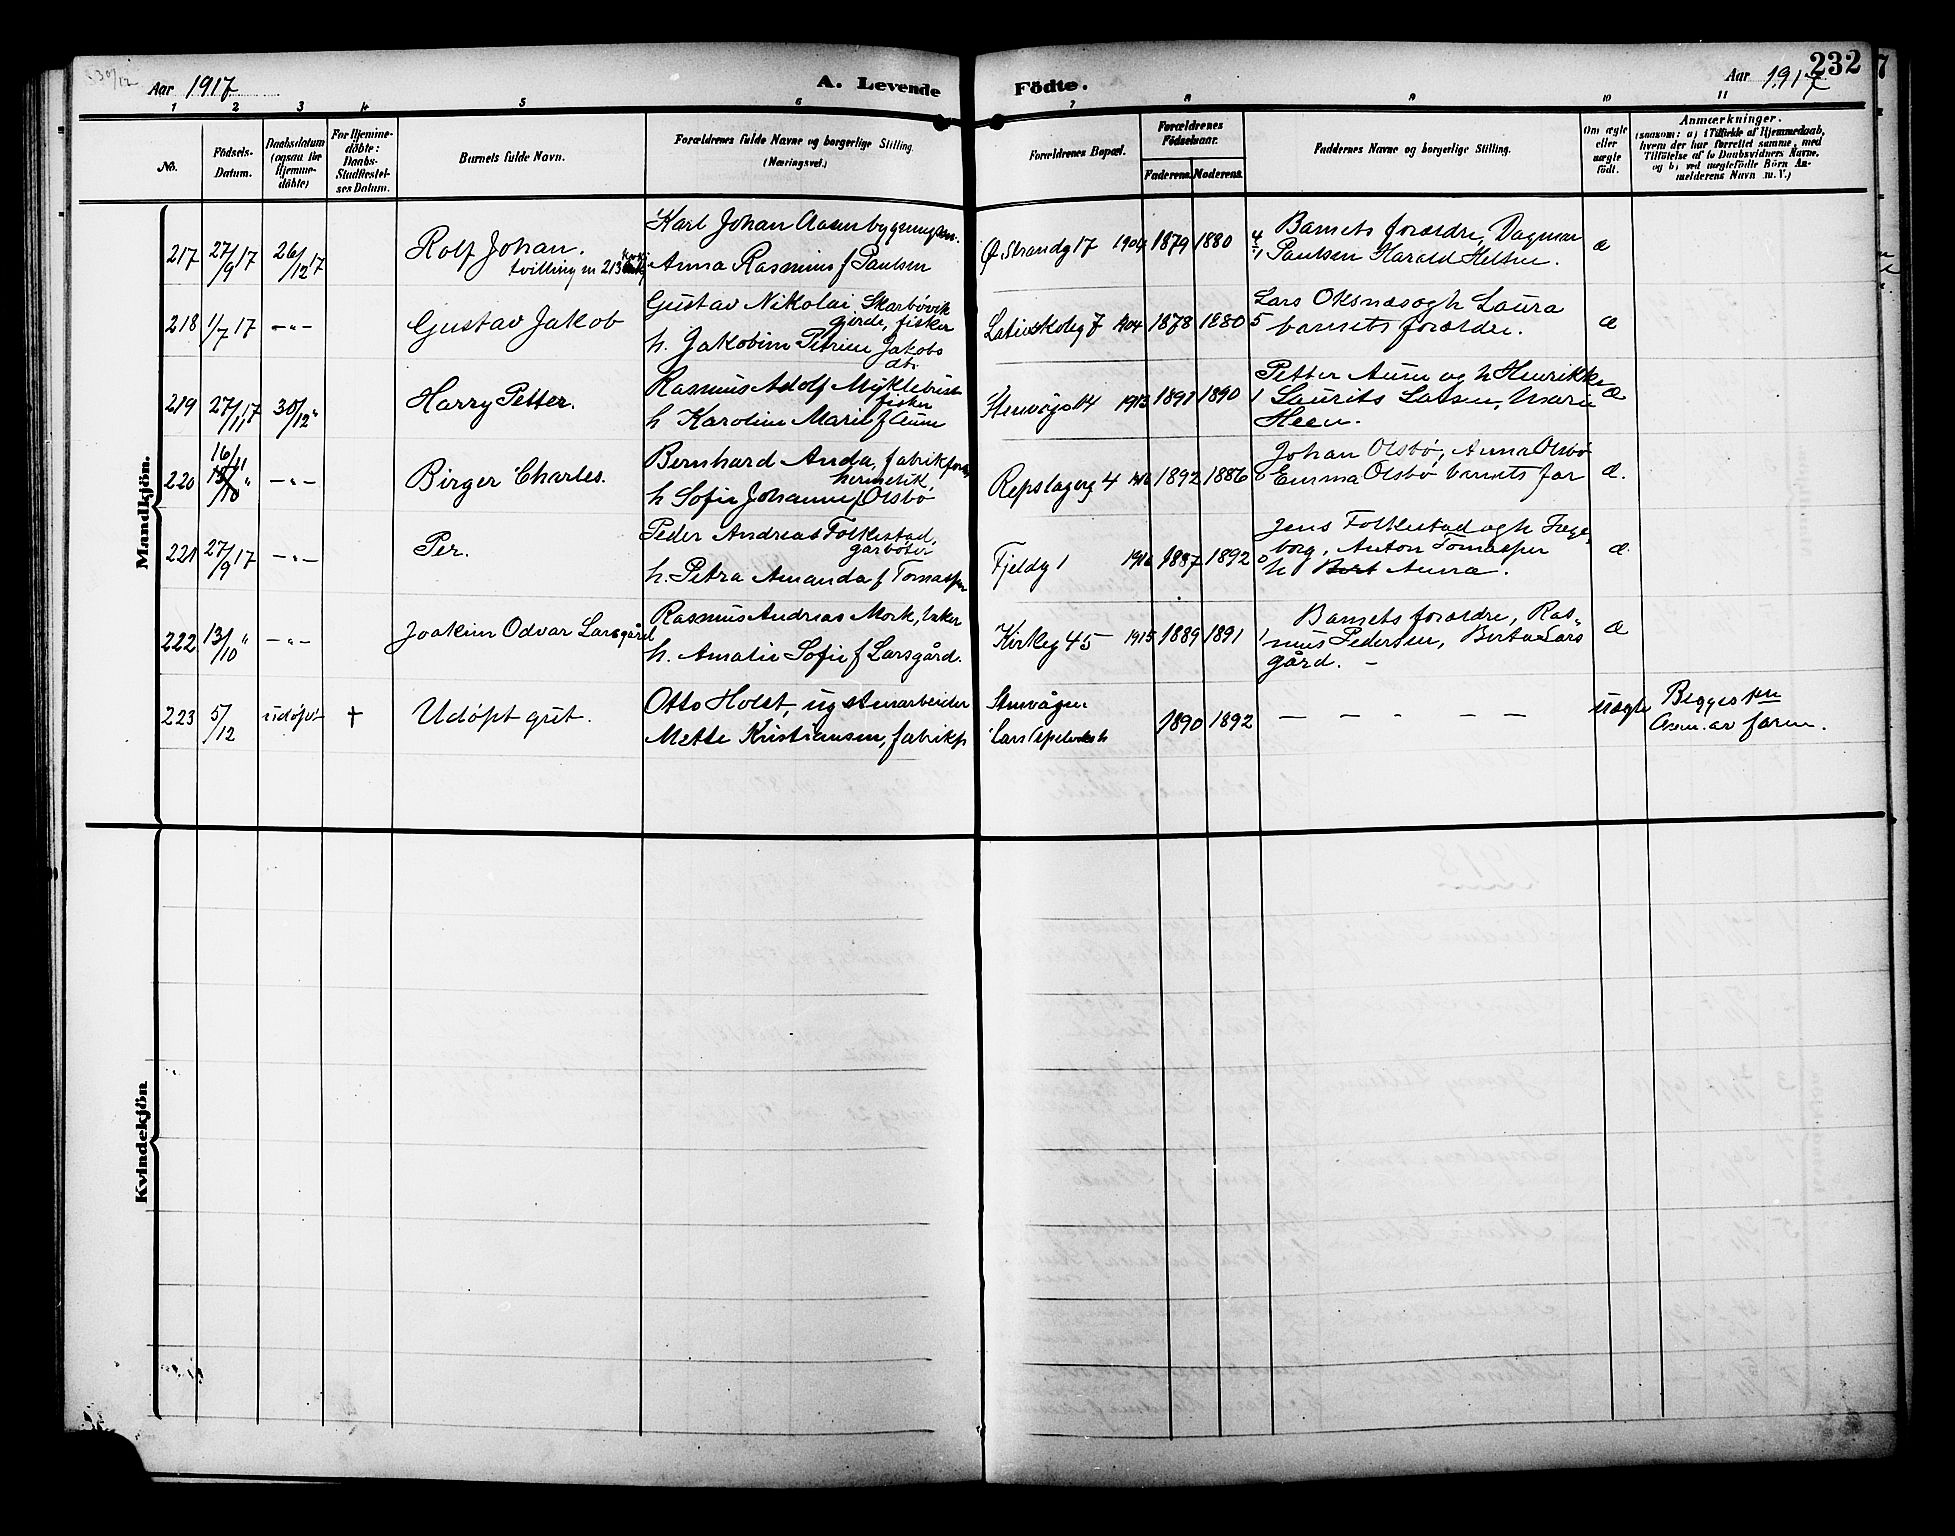 232
Aar 1917
A. Levende Födte.
Aar 1917
1 2 3 4 5 6 7 8 9 10 11
No.
Födsels-
Datum.
Daabsdatum
(ogsaa for
Hjemme-
döbte)
For Hjemme-
döbte:
Daabs-
Stadfæstel-
ses Datum.
Barnets fulde Navn.
Forældrenes fulde Navne og borgerlige Stilling.
(Næringsvei.)
Forældrenes Bopæl.
Forældrenes
Födselsaar.
Faderens. Moderens.
Faddernes Navne og borgerlige Stilling.
Om ægte
eller
uægte
födt.
Anmærkninger.
(saasom: a) i Tilfælde af Hjemmedaab,
hvem der har forrettet samme, med
Tilföielse af to Daabsvidners Navne.
og b) ved uægtefödte Börn An-
melderens Navn m. V.)
Mandkjön.
217 27/9 17 26/12 17
Rolf Johan.
tvilling m 213
Karl Johan Aasen bygningsm.
Anna Rasmus f Paulsen
Ø Strandg 17 1904 1879 1880 4/1
Barnets forældre, Dagmar
Paulsen Harald Heltne.
æ
218 1/7 17 -"-
Gustav Jakob
Gustav Nikolai Skarbövik
gjerde, fisker
h. Jakobine Petrine Jakobs
dtr.
Latinskoleg 7 1904 1878 1880 5
Lars Oksnæs og h Laura
barnets forældre.
æ
219 27/11 17 30/12 "
Harry Petter.
Rasmus Adolf Myklebust
fisker
h Karoline Marie f Aure
Stenvågs 14 1913 1891 1890 1
Petter Aure og h Henrikke
Laurits Larsen, Marie
Heen.
æ
220 16/11 "
-"-
Birger Charles.
Bernhard Anda, fabrikform
hermetik,
h Sofie Johanne f Olsbö
Repslagerg 4 1892 1886
Johan Olsbö, Anna Olsbö
Emma Olsbö barnets far
æ.
221 27/9 17 -"-
Per.
Peder Andreas Folkestad,
garböter
h. Petra Amanda f Tomasgr
Fjeldg 1 1916 1887 1892
Jens Folkestad og h Inge-
borg, Anton Tomasgr
h Anna.
æ
222 13/10 " -"-
Joakim Odvar Larsgård
Rasmus Andreas Mork, baker
h. Amalie Sofie f Larsgård.
Kirkeg 45 1915 1889 1891 1
Barnets forældre, Ras-
mus Pedersen, Berta Lars
gård. -
æ
223 5/12 udöpt †
Udöpt gut.
Otto Holst, ug stenarbeider
Mette Kristiansen, fabrikp
Stenvågen
1890 1892
- - - - -
uægte
Begges 1ste
Anm. av faren.
Kvindekjön